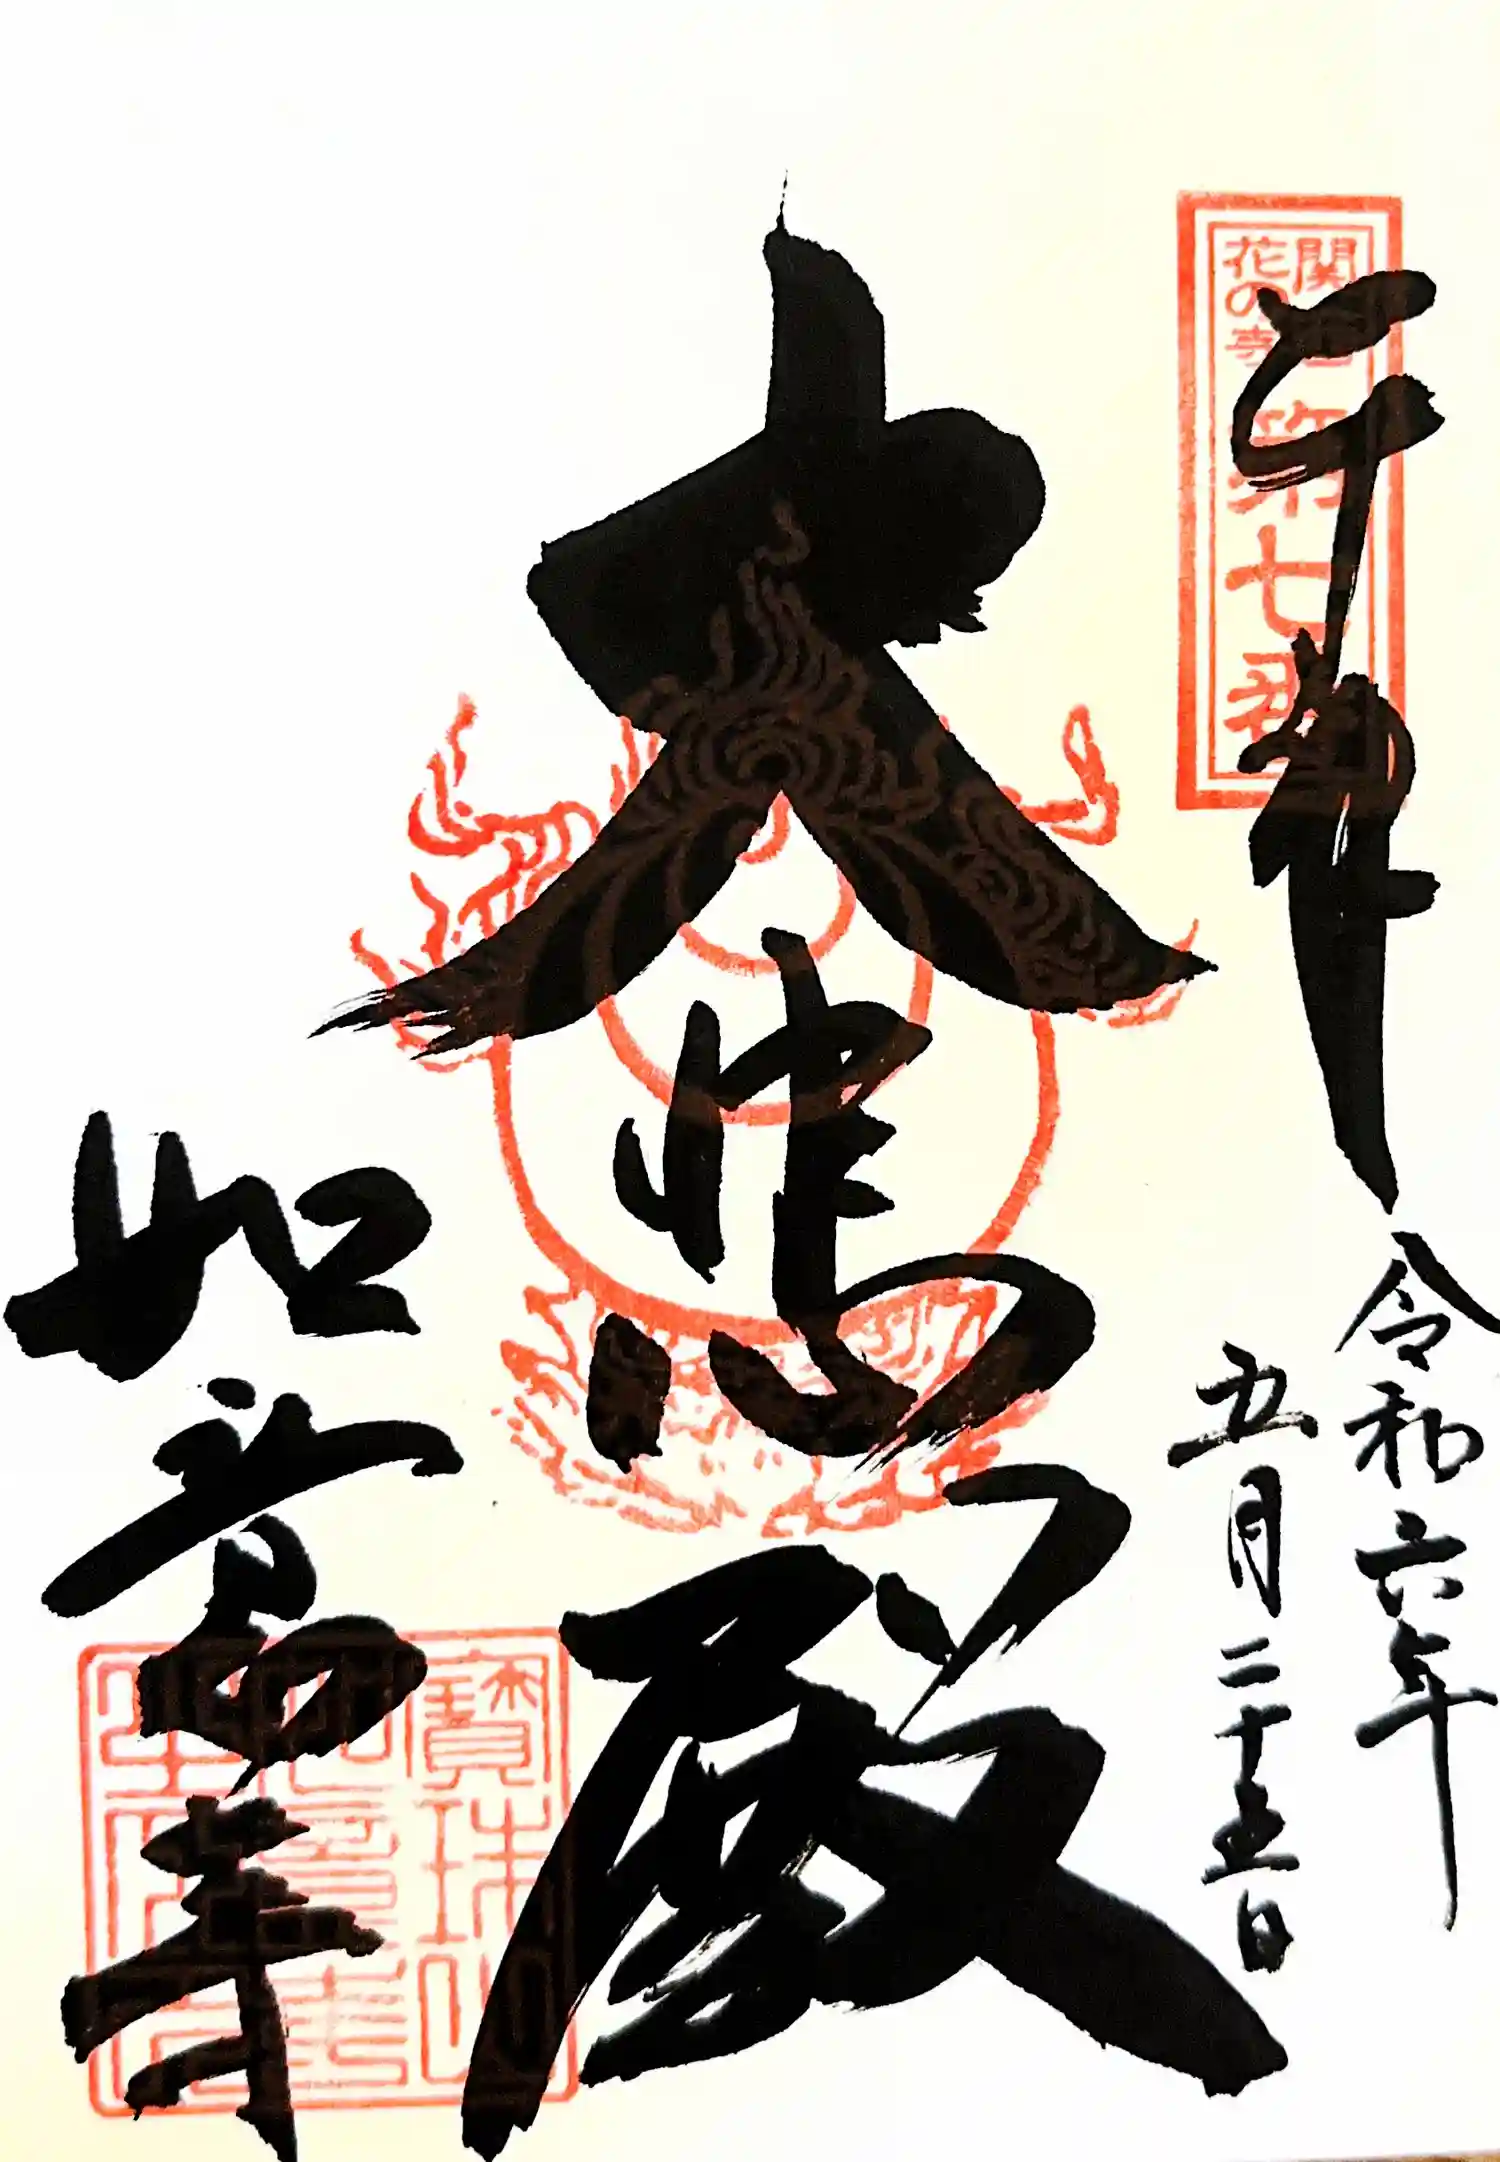 奉拝
令和六年
五月二十五日
関西
花の寺
第七番
大悲殿
如意寺
寶珠山